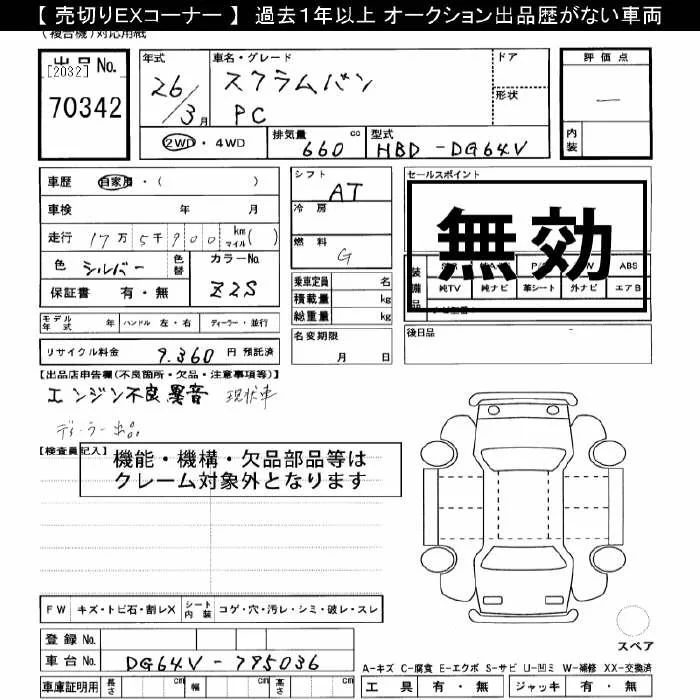 【 売切りEXコーナー 】 過去1年以上 オークション出品歴がない車両
(複合機)対応用紙
出品 No.
[2032]
70342
年式
26/3月
車名・グレード
スクラムバン
PC
ドア
形状
評価点
—
内装
2WD ・ 4WD
排気量 660 cc
型式 HBD-DG64V
車歴 自家用・( )
車検 年 月
走行 17万5千900 km マイル ( )
色 シルバー 色替
カラーNo. Z2S
保証書 有・無
シフト AT
冷房
燃料 G
乗車定員 名
積載量 kg
総重量 kg
セールスポイント
無効
装備品
ABS
純TV 純ナビ 革シート 外ナビ エアB
モデル年式 年 ハンドル 左・右 ディーラー・並行
名変期限
月 日
後日品
リサイクル料金 9.360 円 預託済
【出品店申告欄(不良箇所・欠品・注意事項等)】
エンジン不良 異音 現状車
ディーラー出品
【検査員記入】
機能・機構・欠品部品等は
クレーム対象外となります
FW キズ・トビ石・割レX シート内装 コゲ・穴・汚レ・シミ・破レ・スレ
登録 No.
車台 No. DG64V-795036
車庫証明用 長さ cm 幅 cm 高さ cm
スペア
A-キズ C-腐食 E-エクボ S-サビ U-凹ミ W-補修 XX-交換済
工具 有・無 ジャッキ 有・無